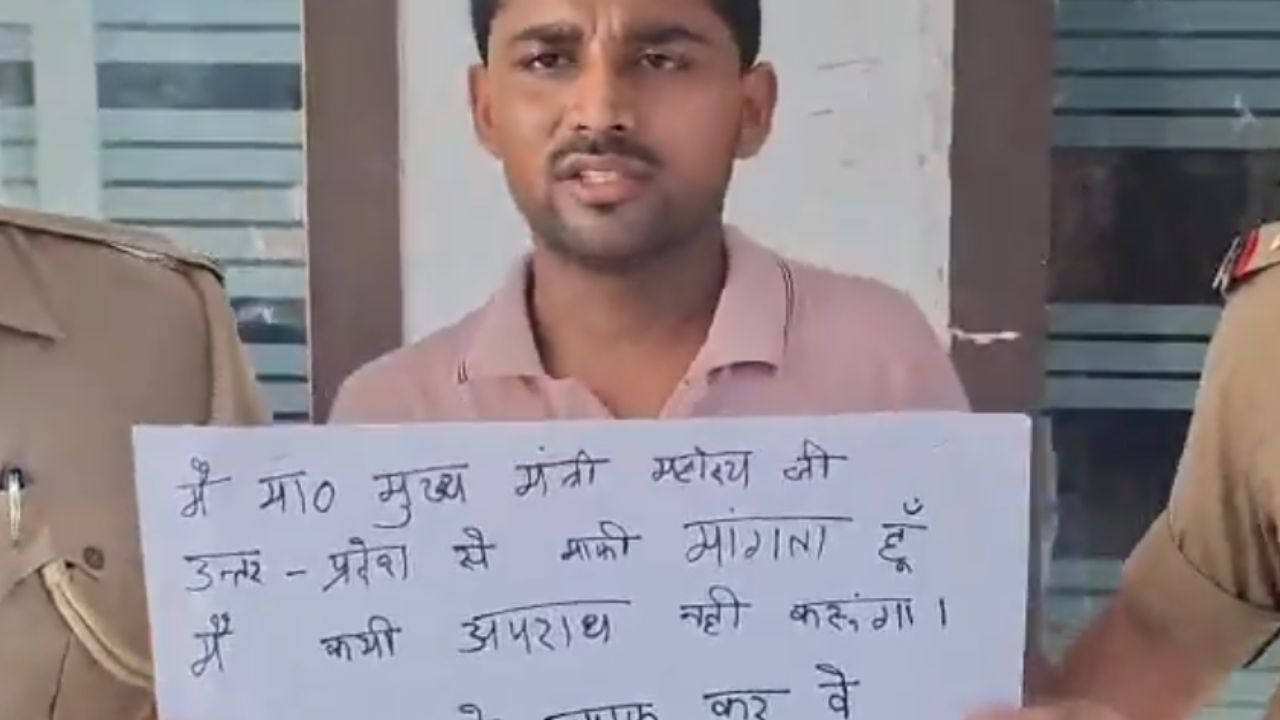 मैं मा० मुख्य मंत्री महोदय जी
उत्तर - प्रदेश से माफी मांगता हूँ
मैं कभी अपराध नही करूंगा।
माफ कर दे